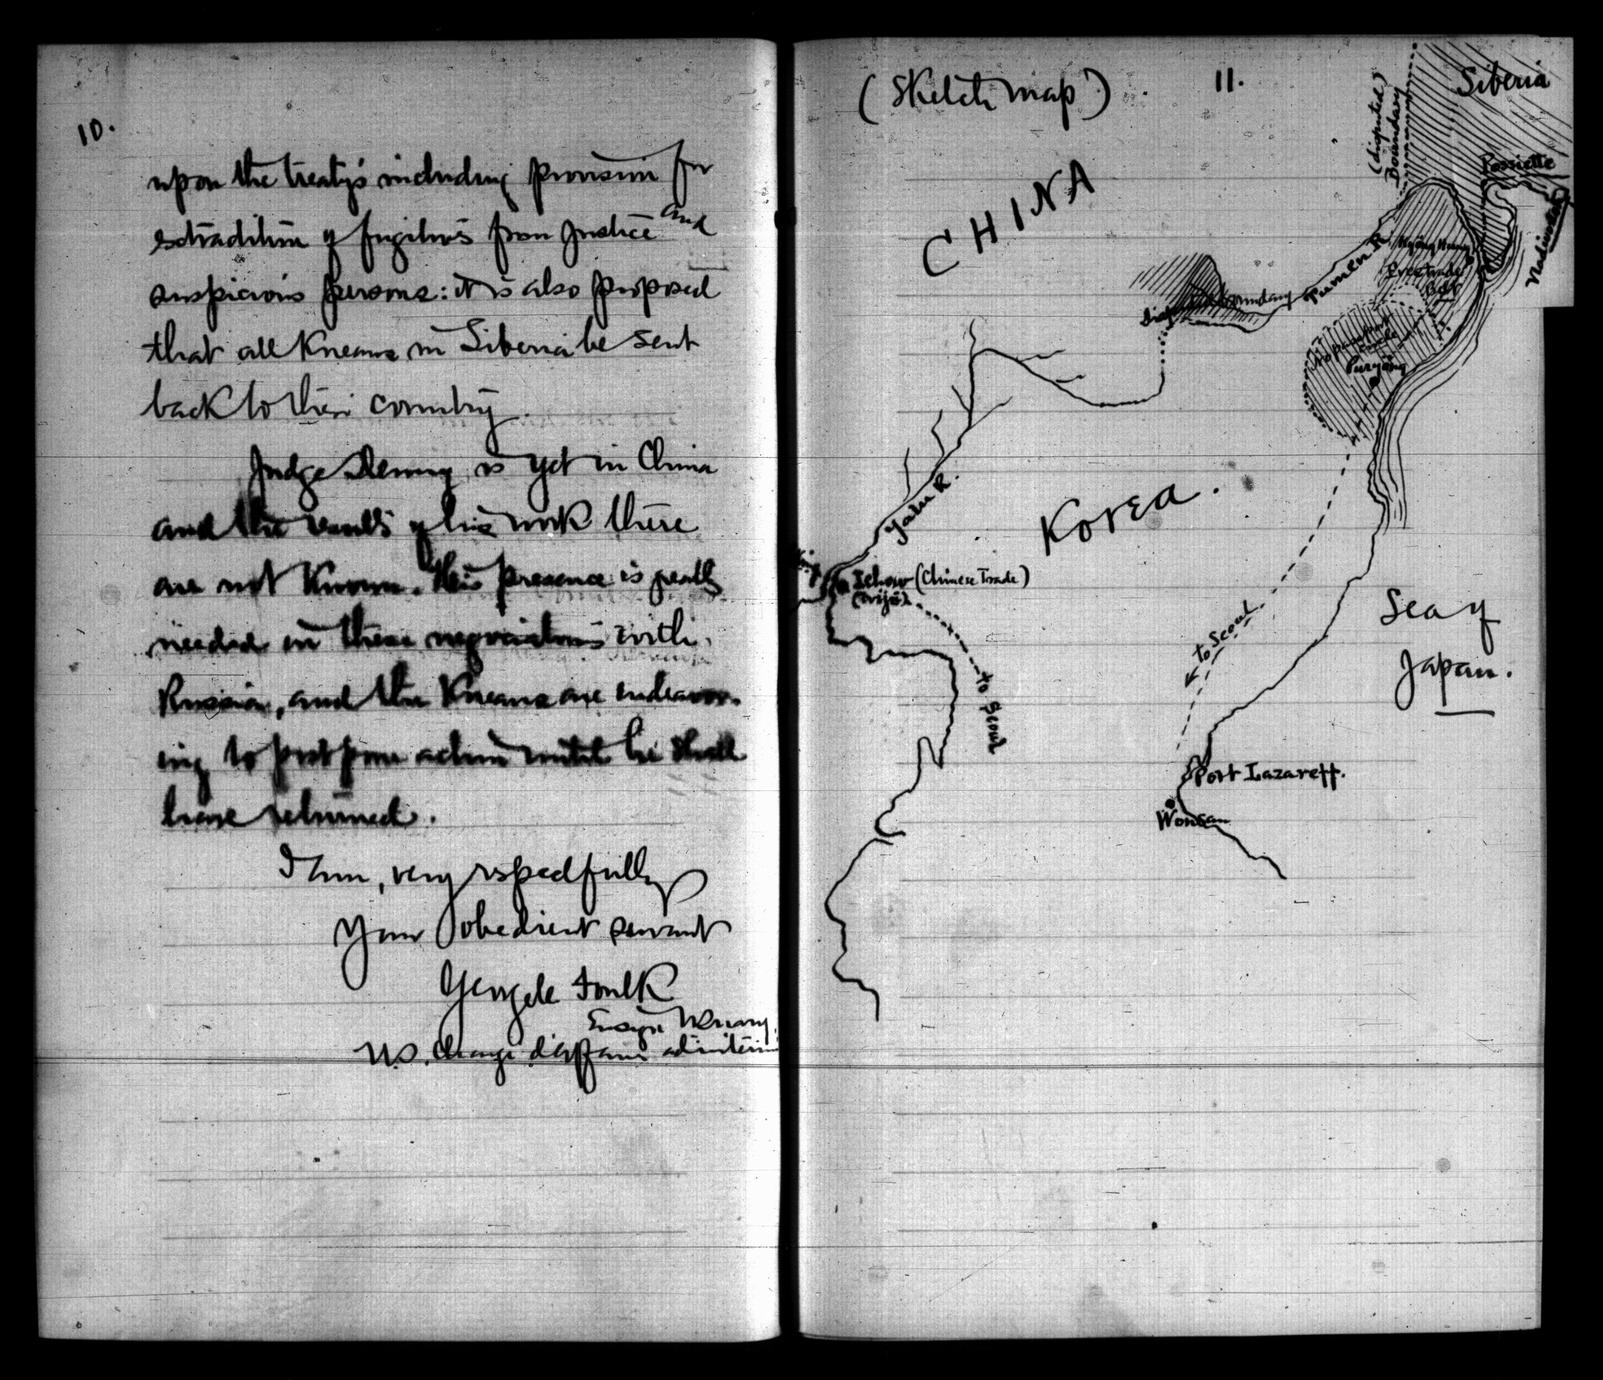 10.
upon the treaty's including provision for
extradition of fugitives from justice and
suspicious persons: it is also proposed
that all Koreans in Siberia be sent
back to their country.
Judge Denny is yet in China
and the results of his work there
are not known. His presence is greatly
needed in these negociations with
Russia, and the Koreans are endeavor-
ing to postpone action until he shall
have returned.
I am, very respectfully
Your obedient servant
George C. Foulk
Ensign U.S. Navy,
U.S. Chargé d'affaires ad interim
(Sketch map) 11.
Siberia
(disputed)
Boundary
Possiette
CHINA
Tumen R.
boundary
Yalu R.
Korea.
Ichow (Chinese Trade)
(Wiju)
to Seoul
to Seoul
Sea of
Japan.
Port Lazareff.
Wonsan